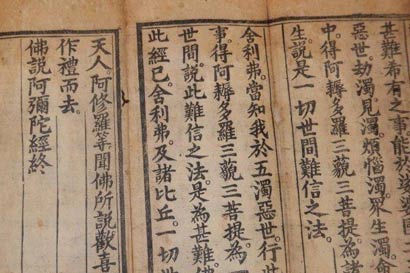 甚難希有之事能於娑婆國
惡世。劫濁。見濁。煩惱濁。眾生濁。命
中。得阿耨多羅三藐三菩提。為諸
生。說是一切世間難信之法。
舍利弗。當知我於五濁惡世。行
事。得阿耨多羅三藐三菩提。為
世間。說此難信之法。是為甚難。佛
此經已。舍利弗。及諸比丘。一切
天人阿修羅等聞佛所說歡喜
作禮而去。
佛說阿彌陀經終